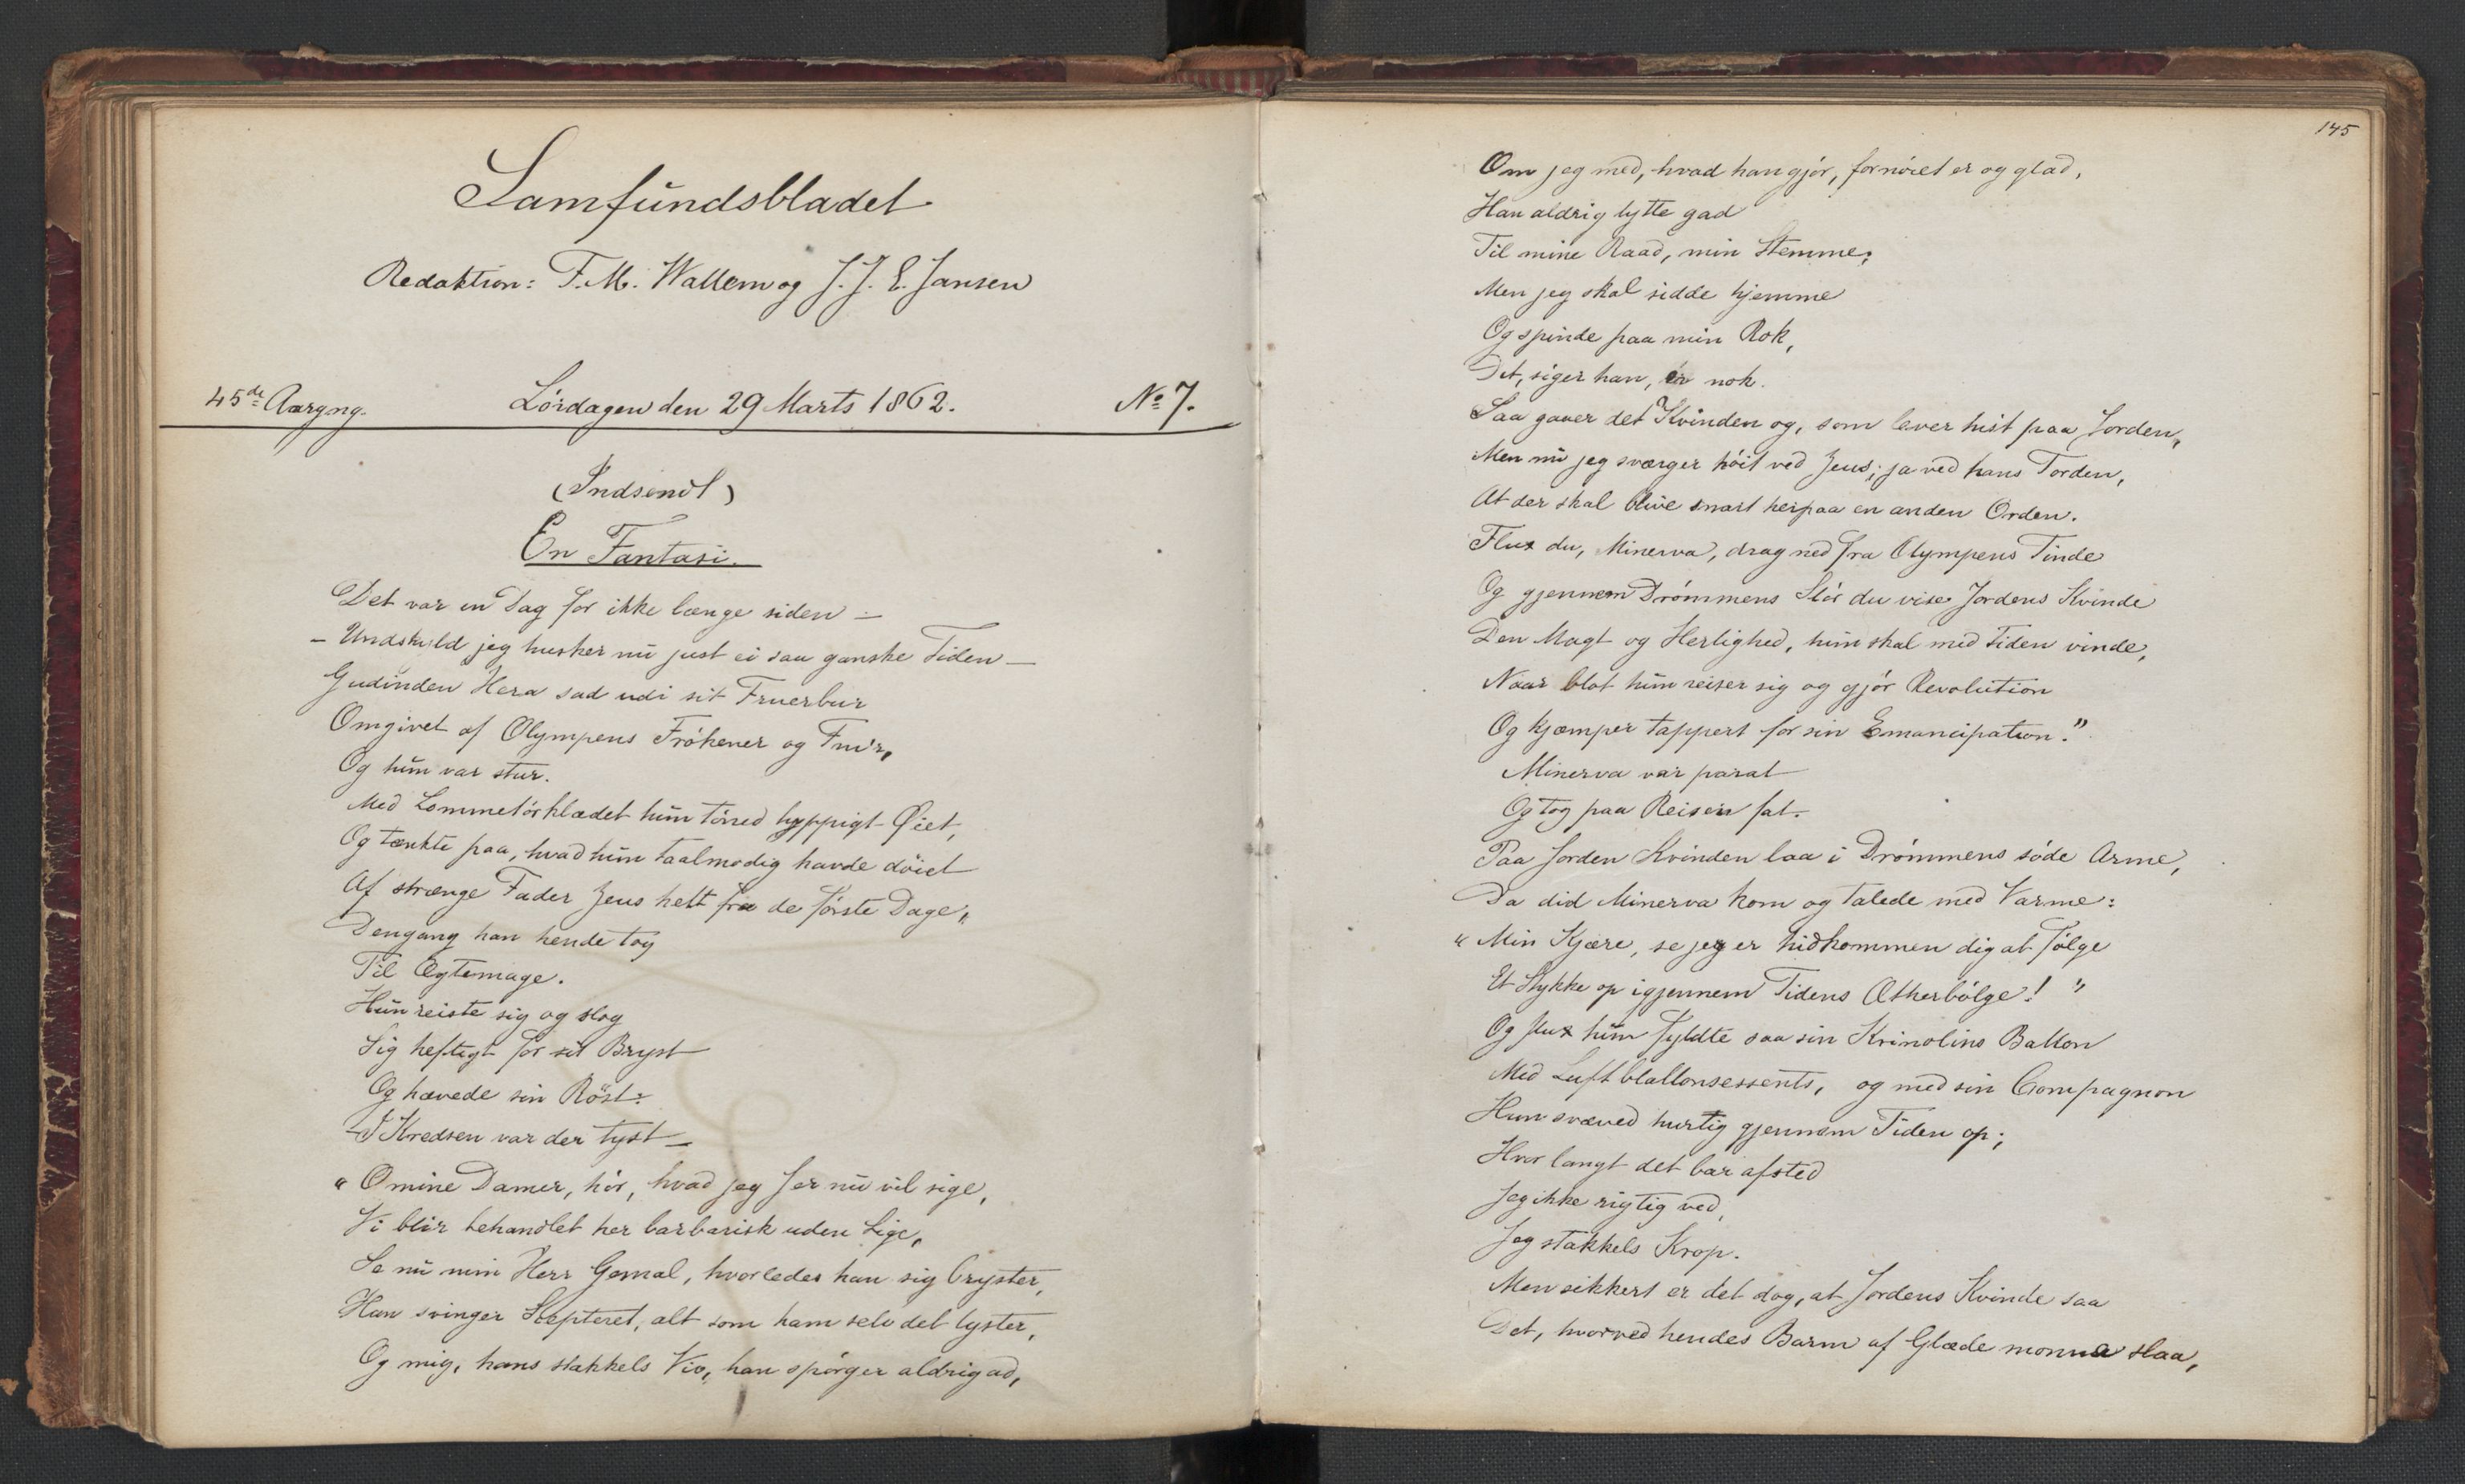 Samfundsbladet
Redaktion: F. M. Wallem og J. J. E. Jansen
45de Aargng. Lørdagen den 29 Marts 1862. No 7.
(Indsendt)
En Fantasi.
Det var en Dag for ikke længe siden –
– Undskyld jeg husker nu just ei saa ganske Tiden –
Gudinden Hera sad udi sit Fruerbur
Omgivet af Olympens Frøkener og Fru'r,
Og hun var stur.
Med Lommetørklædet hun tørred hyppigt Øiet,
Og tænkte paa, hvad hun taalmodig havde døiet
Af strænge Fader Zeus helt fra de første Dage,
Dengang han hende tog
Til Ægtemage.
Hun reiste sig og slog
Sig heftigt for sit Bryst
Og hævede sin Røst:
– I Kredsen var der tyst –
"O mine Damer, hør, hvad jeg Jer nu vil sige,
Vi blir behandlet her barbarisk uden Lige,
Se nu min Herr Gemal, hvorledes han sig bryster,
Han svinger Scepteret, alt som ham selv det lyster,
Og mig, hans stakkels Viv, han spørger aldrig ad,
145
Om jeg med, hvad han gjør, fornøiet er og glad,
Han aldrig lytte gad
Til mine Raad, min Stemme;
Men jeg skal sidde hjemme
Og spinde paa min Rok,
Det, siger han, er nok.
Saa gaaer det Kvinden og, som lever hist paa Jorden,
Men nu jeg sværger høit ved Zeus; ja ved hans Torden,
At der skal blive snart herpaa en anden Orden.
Flux du, Minerva, drag ned fra Olympens Tinde
Og gjennem Drømmens Slør du vise Jordens Kvinde
Den Magt og Herlighed, hun skal med Tiden vinde,
Naar blot hun reiser sig og gjør Revolution
Og kjæmper tappert for sin Emancipation."
Minerva var parat
Og tog paa Reisen fat.
Paa Jorden Kvinden laa i Drømmens søde Arme,
Da did Minerva kom og talede med Varme:
"Min Kjære, se jeg er hidkommen dig at følge
Et Stykke op igjennem Tidens Ætherbølge!"
Og flux hun fyldte saa sin Krinolins Ballon
Med Luftblallonsessents, og med sin Compagnon
Hun svæved hurtig gjennem Tiden op;
Hvor langt det bar afsted
Jeg ikke rigtig ved,
Jeg stakkels Krop.
Men sikkert er det dog, at Jordens Kvinde saa
Det, hvorved hendes Barm af Glæde monne slaa,